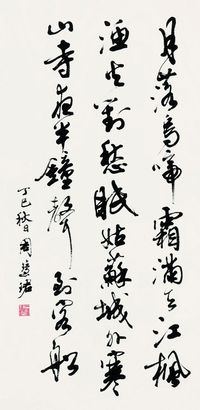 月落烏啼霜滿天江楓
漁火對愁眠姑蘇城外寒
山寺夜半鐘聲到客船
丁巳秋日周慧珺